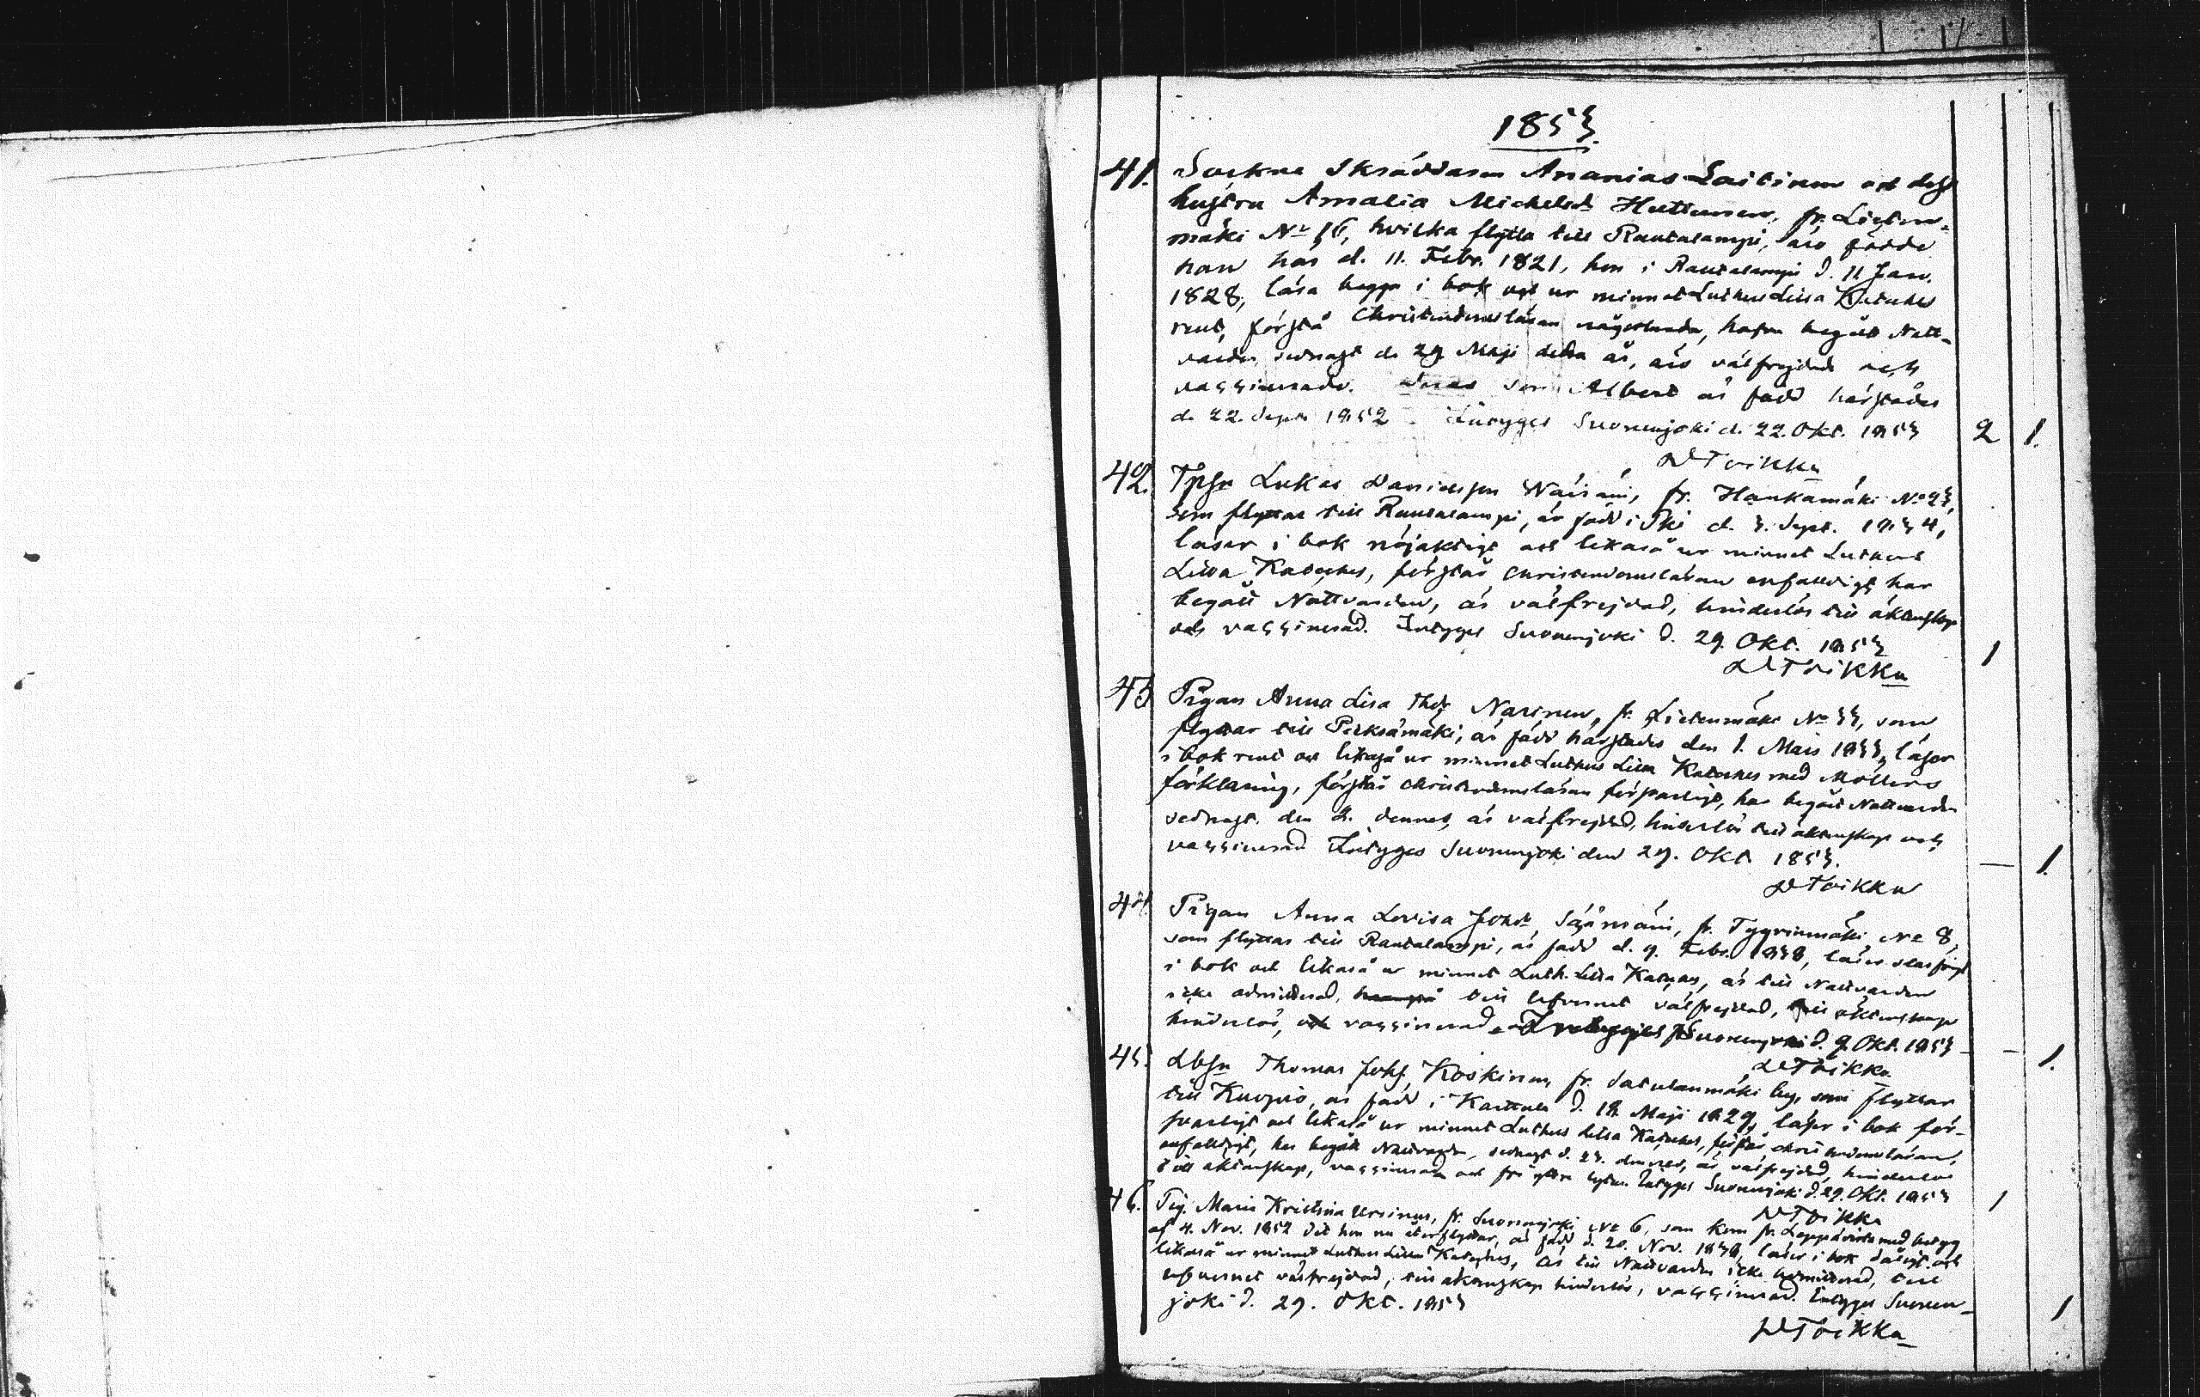 1853.
41. Sockne Skräddaren Ananias Laitinen och dess
hustru Amalia Michelsdr Huttunen, fr. Lieten-
mäki No 16, hvilka flytta till Rautalampi, äro födde
han här d. 11. Febr. 1821, hon i Rautalampi d. 11 Janu.
1828, läsa begge i bok och ur minnet Lutheri Lilla Kateches
rent, förstå Christendomsläran någorlunda, hafva begått Natt-
varden sednast d. 29 Maji detta år, äro välfrejdade och
vaccinerade. Deras Son Albert är född härstädes
d. 22. Sept. 1852 Intygas Suonenjoki d. 22. Okt. 1853 2 1.
DToikka
42. Lukas Davidsson Wäisäin, fr. Haukamäki No 23,
som flyttar till Rautalampi, är född i d. 3. Sept. 1834,
läser i bok nöjaktigt och likaså ur minnet Lutheri
Lilla Kateches, förstår christendomsläran enfaldigt, har
begått Nattvarden, är välfrejdad, hinderlös till äktenskap
och vaccinerad. Intygas Suonenjoki d. 29. Okt. 1853 1
DToikka
43 Pigan Anna Lisa Narinen, fr. Lietenmäki No 33, som
flyttar till Pieksämäki, är född härstädes den 1. Mars 1833, läser
i bok rent och likaså ur minnet Lutheri Lilla Kateches med Möllers
förklaring, förstår christendomsläran försvarligt, har begått Nattvarden
sednast den 2. dennes, är välfrejdad, hinderlös till äktenskap och
vaccinerad Intygas Suonenjoki den 29. Okt 1853. — 1.
DToikka
44. Pigan Anna Lovisa Johdr Säämäin, fr. Tyyrinmäki No 8,
som flyttar till Rautalampi, är född d. 9. Febr. 1838, läser
i bok och likaså ur minnet Luth. Lilla Kateches, är till Nattvarden
icke admitterad, till lefvernet välfrejdad, till äktenskap
hinderlös, och vaccinerad. Intygas Suonenjoki d. 9. Okt. 1853 — 1.
DToikka
45. Thomas Johs. Koskinen, fr. Satulanmäki by, som flyttar
till Kuopio, är född i Karttula d. 18. Maji 1829, läser i bok för-
svarligt och likaså ur minnet Lutheri lilla Kateches, förstår christendomsläran
enfaldigt, har begått Nattvarden sednast d. 23. dennes, är välfrejdad, hinderlös
till äktenskap, vaccinerad och fri lyten. Intygas Suonenjoki d. 29. Okt. 1853 1
DToikka
46. Pig. Maria Kristina Ursinus, fr. Suonenjoki No 6, som kom fr. Leppävirta med betyg
af 4. Nov. 1852 dit hon nu återflyttar, är född d. 20. Nov. 1838, läser i bok dåligt och
likaså ur minnet Lutheri Lilla Kateches, är till Nattvarden icke admitterad, till
lefvernet välfrejdad, till äktenskap hinderlös, vaccinerad. Intygas Suonen-
joki d. 29. Okt. 1853 1
DToikka